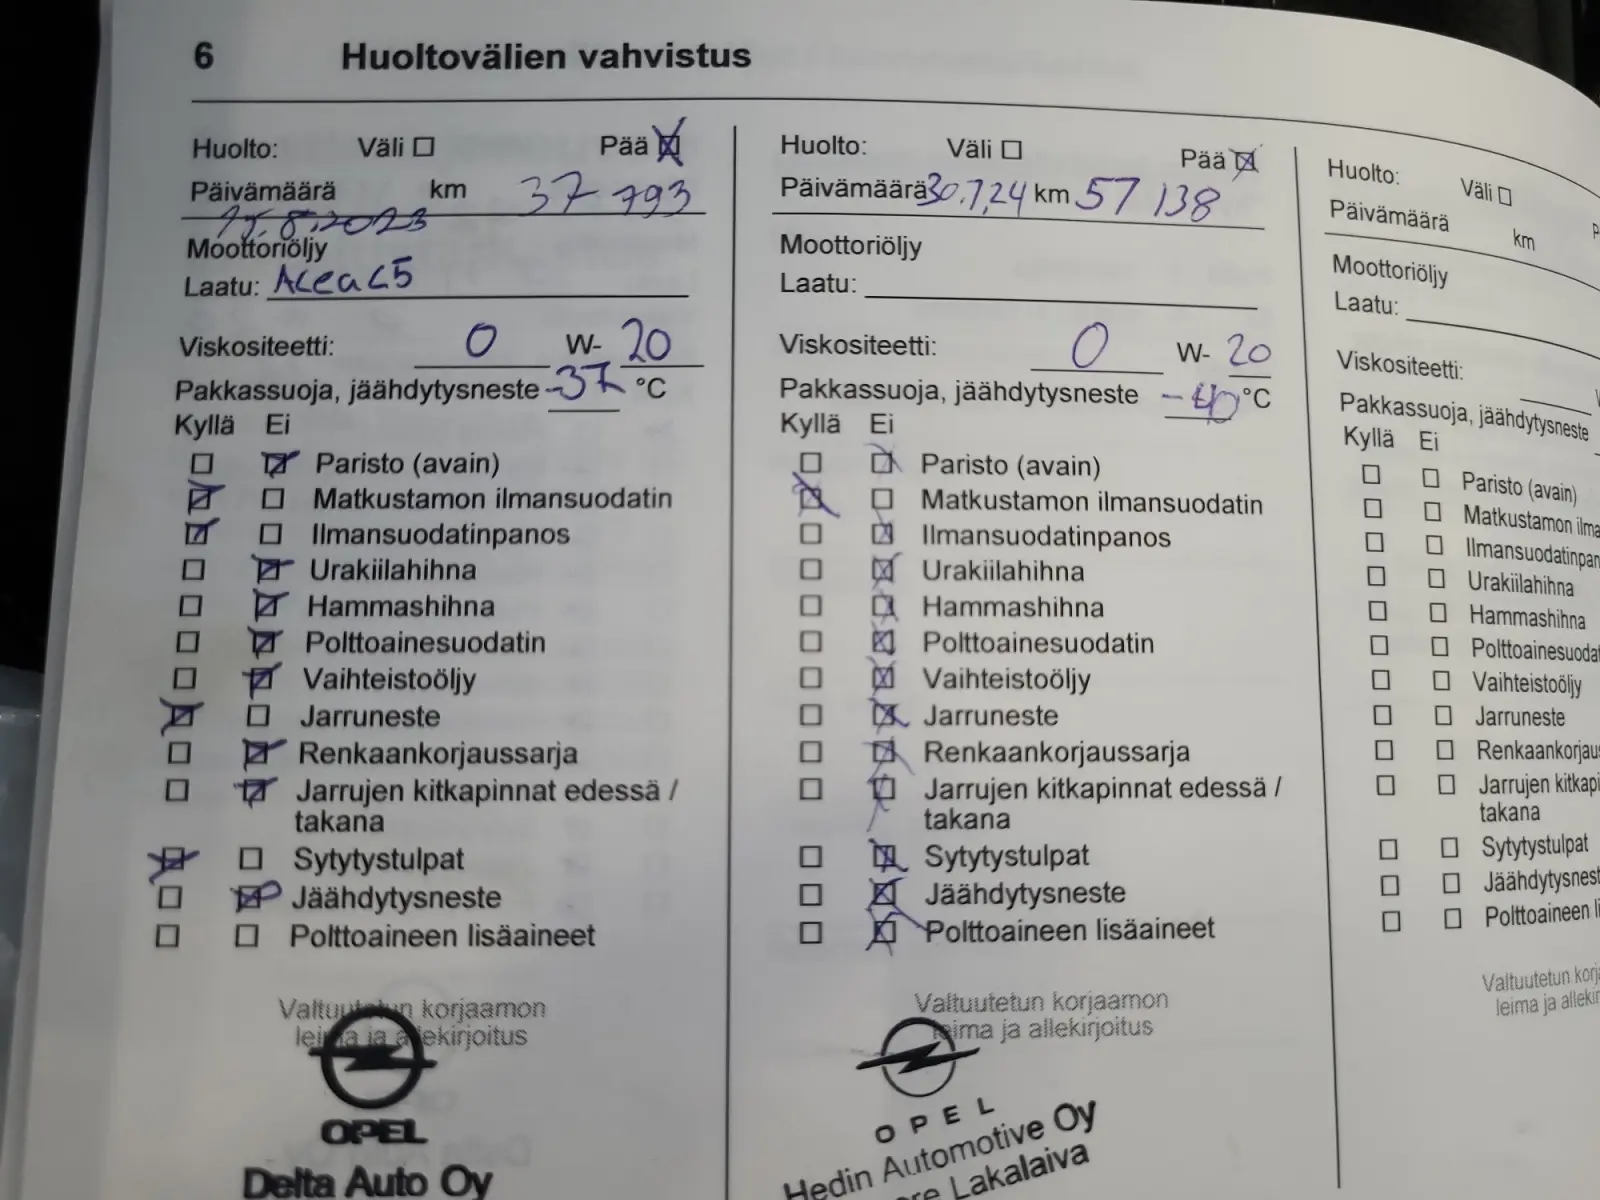 6 Huoltovälien vahvistus
Huolto: Väli Pää
Päivämäärä km 37 793
15.8.2023
Moottoriöljy
Laatu: Acea C5
Viskositeetti: 0 W- 20
Pakkassuoja, jäähdytysneste -37 °C
Kyllä Ei
Paristo (avain)
Matkustamon ilmansuodatin
Ilmansuodatinpanos
Urakiilahihna
Hammashihna
Polttoainesuodatin
Vaihteistoöljy
Jarruneste
Renkaankorjaussarja
Jarrujen kitkapinnat edessä /
takana
Sytytystulpat
Jäähdytysneste
Polttoaineen lisäaineet
Valtuutetun korjaamon
leima ja allekirjoitus
OPEL
Delta Auto Oy
Huolto: Väli Pää
Päivämäärä 30.7.24 km 57 138
Moottoriöljy
Laatu:
Viskositeetti: 0 W- 20
Pakkassuoja, jäähdytysneste -40 °C
Kyllä Ei
Paristo (avain)
Matkustamon ilmansuodatin
Ilmansuodatinpanos
Urakiilahihna
Hammashihna
Polttoainesuodatin
Vaihteistoöljy
Jarruneste
Renkaankorjaussarja
Jarrujen kitkapinnat edessä /
takana
Sytytystulpat
Jäähdytysneste
Polttoaineen lisäaineet
Valtuutetun korjaamon
leima ja allekirjoitus
OPEL
Hedin Automotive Oy
Lakalaiva
Huolto: Väli
Päivämäärä km
Moottoriöljy
Laatu:
Viskositeetti:
Pakkassuoja, jäähdytysneste
Kyllä Ei
Paristo (avain)
Matkustamon ilma
Ilmansuodatinpan
Urakiilahihna
Hammashihna
Polttoainesuodat
Vaihteistoöljy
Jarruneste
Renkaankorjaus
Jarrujen kitkapi
takana
Sytytystulpat
Jäähdytysnest
Polttoaineen li
Valtuutetun korj
leima ja allekir